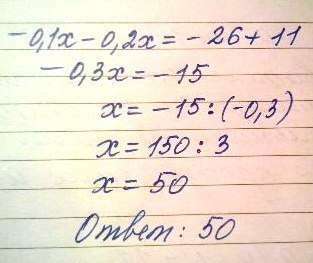 -0,1x-0,2x=-26+11
-0,3x=-15
x=-15:(-0,3)
x=150:3
x=50
Ответ: 50